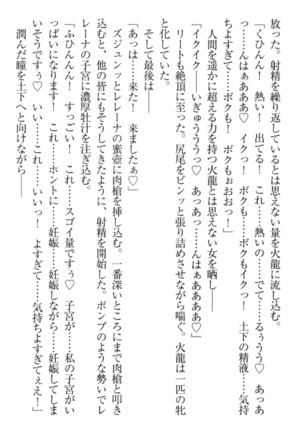 放った。射精を繰り返しているとは思えない量を火龍に流し込む。
「くひんん！　熱い！　出てる！　これ……熱いの……でて……るぅうう♡　あっあ
っ……んはぁあああ♡　イクっ！　ボクも……ボクもイクっ！　土下の精液……気持
ちよすぎて……ボクも！　ボクもぉおおっ！」
　人間を遥かに超える力を持つ火龍とは思えない女を晒し――
「イクイク――いぎゅううう♡　あっあっ……んはぁああああ♡」
　リートも絶頂に至った。尻尾をビンッと張り詰めさせながら喘ぐ。火龍は一匹の牝
と化していた。
　そして最後は――
「あっは……来た！　来ましたぁ♡」
　ズジュンッとレレーナの蜜壺に肉槍を挿し込む。一番深いところにまで肉槍と叩き
込むと、他の皆にもそうしてきたように、射精を開始した。ポンプのような勢いでレ
レーナの子宮に濃厚牡汁を注ぎ込む。
「ふひんんん！　すっごい！　これ……スゴイ量です♡　子宮が……私の子宮がい
っぱいになります！　これ……ホントに……妊娠……妊娠しながら……妊娠してしま
いそうですぅ♡　いい……これ……いいっ！　よすぎて――気持ちよすぎてぇえ！」
　潤んだ瞳を土下へと向けながら――